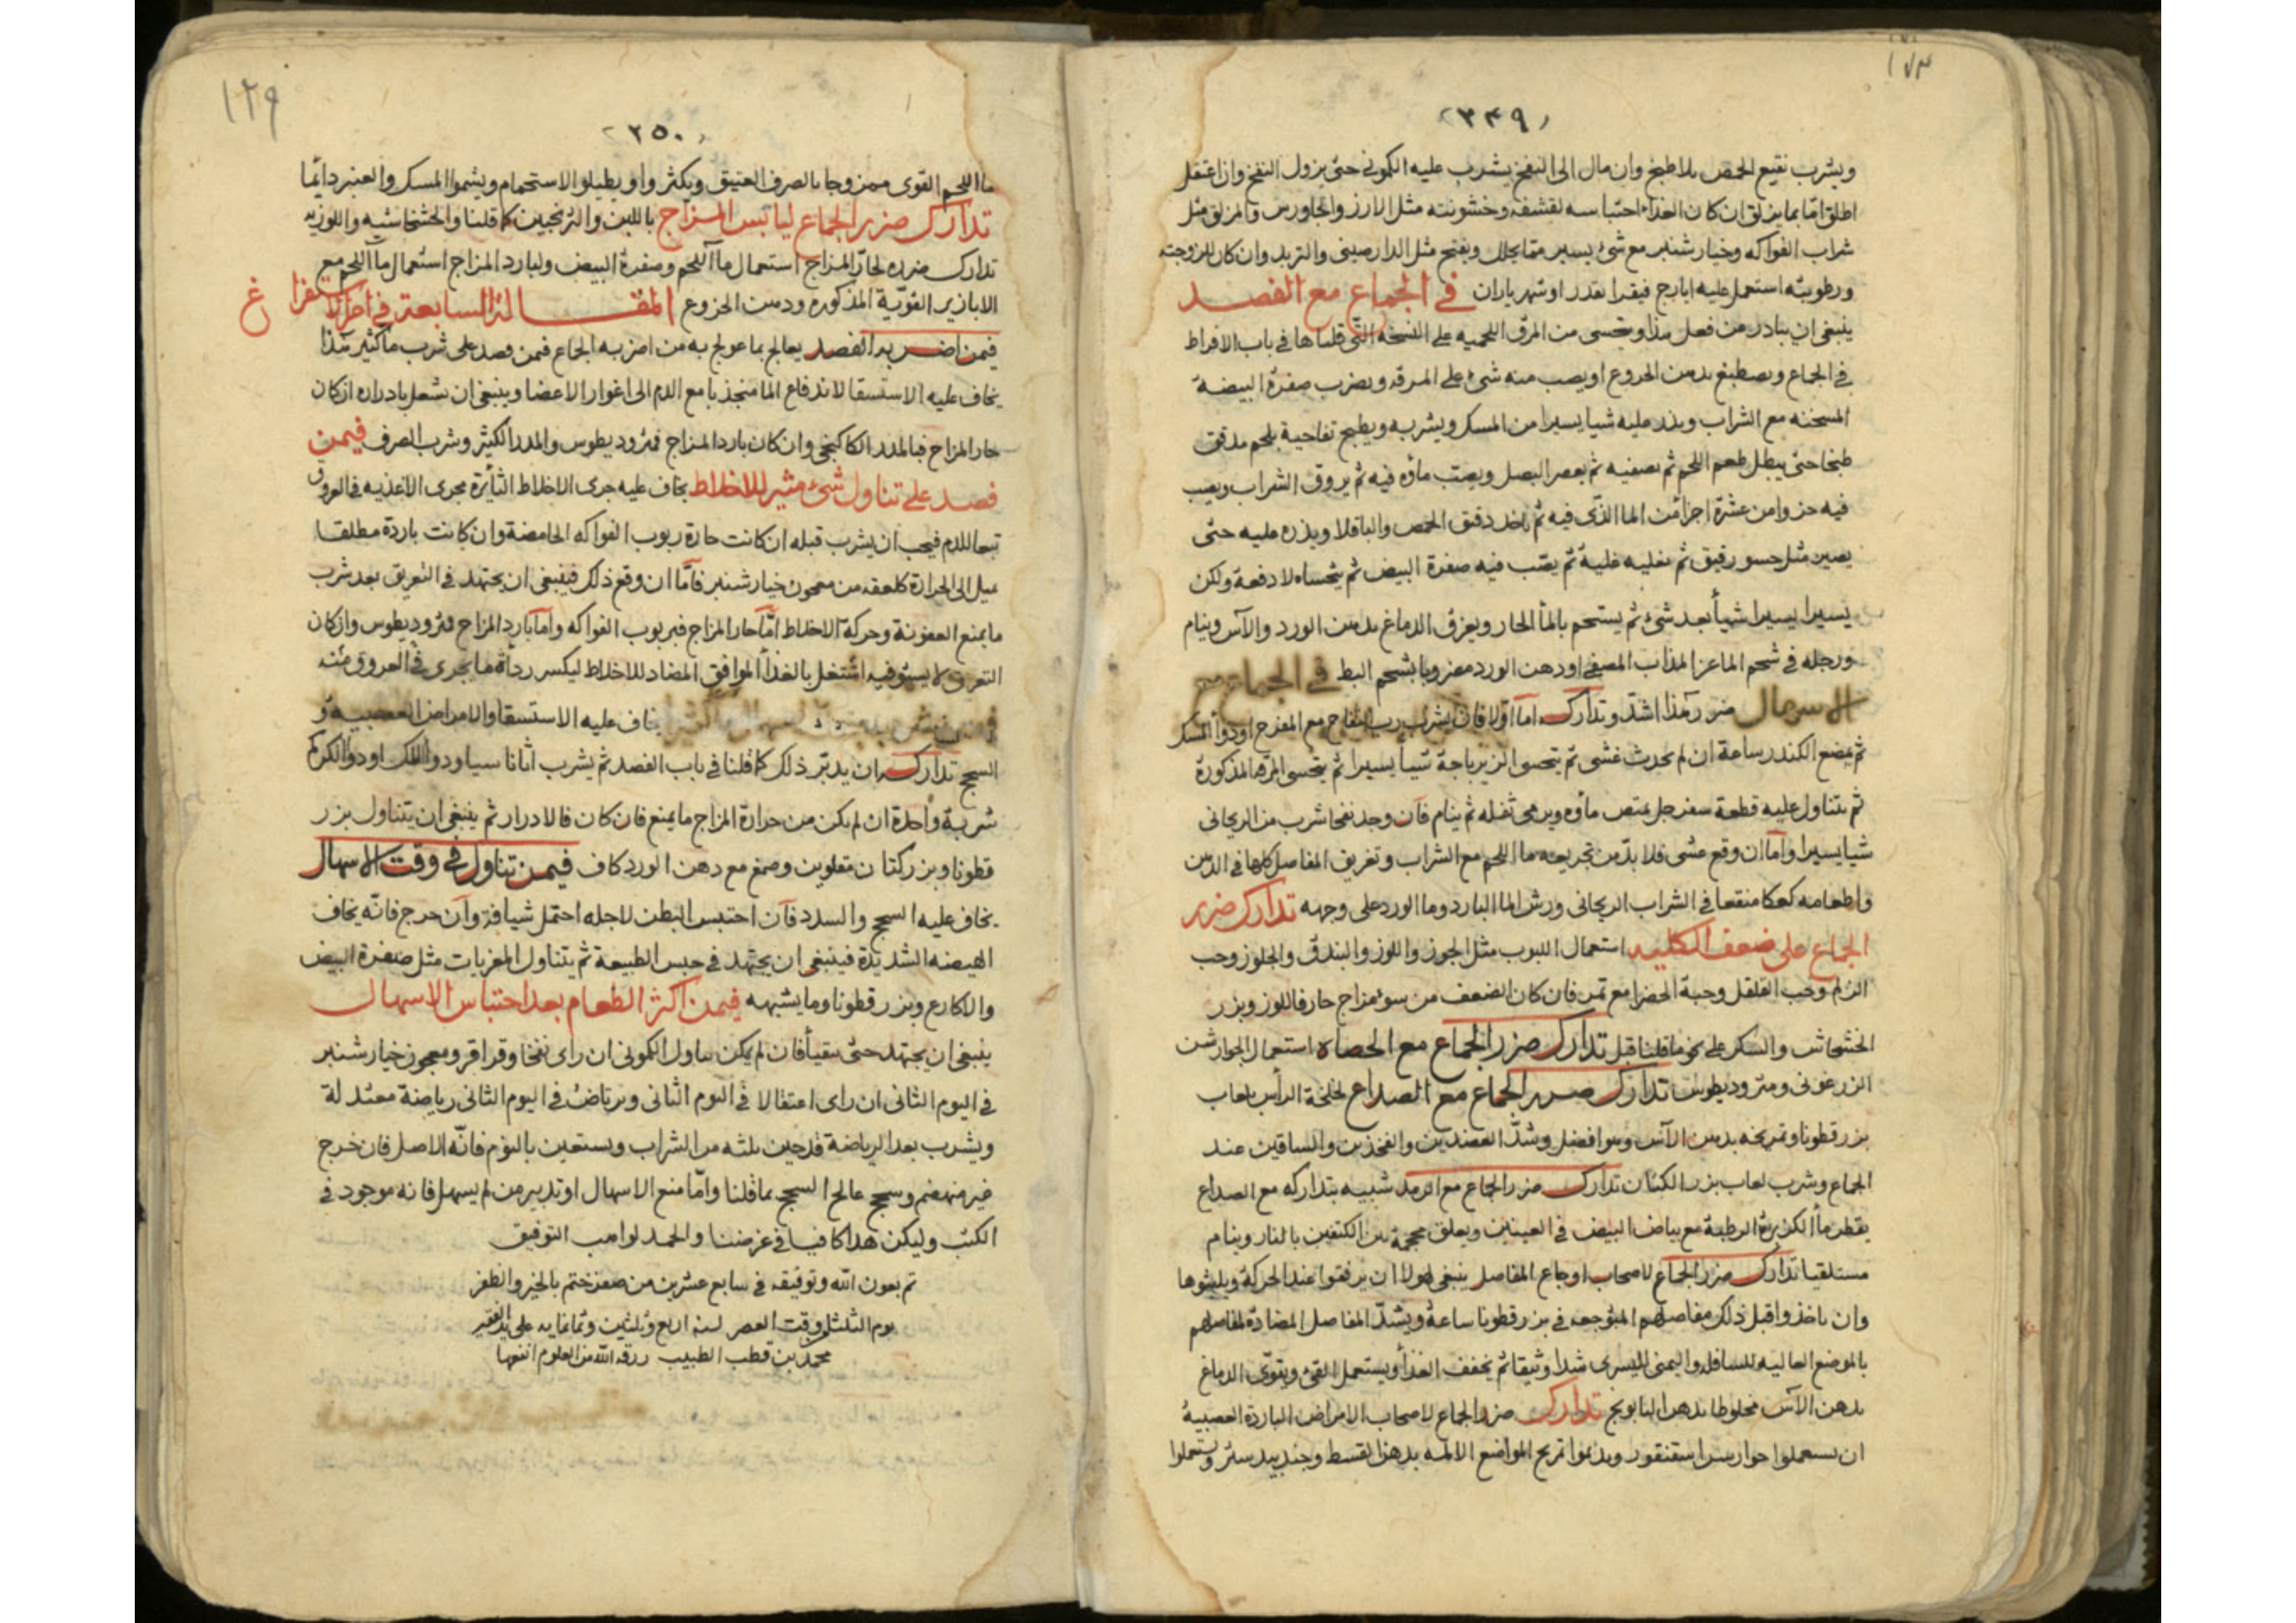 ١٧٣
٣٤٩
ويشرب نقيع الحمص بلا طبخ وان مال الى النفخ يشرب عليه الكمونى حتى يزول النفخ وان اعتقل
اطلق اما بما يزلق ان كان الغذاء احتباسه لقشفه وخشونته مثل الارز والجاورس والمزلق مثل
شراب الفواكه وخيار شنبر مع شئ يسير مما يحلل ويفتح مثل الدارصينى والتربد وان كان للزوجته
ورطوبته استعمل عليه ايارج فيقرا بقدر او شهرياران في الجماع مع الفصد
ينبغى ان يبادر من فعل هذا ويتحسى من المرق اللحميه على النسخه التى قلناها فى باب الافراط
فى الجماع ويصطبغ بدهن الخروع او يصب منه شئ على المرقه ويضرب صفرة البيضة
المسخنه مع الشراب ويذر عليه شيا يسيرا من المسك ويشربه ويطبخ تفاحية بلحم مدقق
طبخا حتى يبطل طعم اللحم ثم يصفيه ثم يعصر البصل ويصب ماؤه فيه ثم يروق الشراب ويصب
فيه جزوا من عشرة اجزا من الما الذى فيه ثم ياخذ دقيق الحمص والباقلا ويذره عليه حتى
يصير مثل حسو رقيق ثم يغليه غلية ثم يصب فيه صفرة البيض ثم يتحساه لا دفعة ولكن
يسيرا يسيرا شيأ بعد شئ ثم يستحم بالمأ الحار ويعرق الدماغ بدهن الورد والآس وينام
ورجله فى شحم الماعز المذاب المصفى او دهن الورد مضروبا بشحم البط فى الجماع مع
الاسهال ضرر هذا اشد وتدارك اما اولا فان يشرب رب التفاح مع المفرح او دوأ المسك
ثم يمضغ الكندر ساعة ان لم يحدث غشى ثم يتحسى الزيرباجة شيأ يسيرا ثم يتحسى المرقه المذكورة
ثم يتناول عليه قطعة سفرجل يمتص ماؤه ويرمى ثفله ثم ينام فان وجد نفخا شرب من الريحانى
شيا يسيرا واما ان وقع غشى فلا بد من تجريعه ما اللحم مع الشراب وتغريق المفاصل كلها فى الدهن
واطعامه كعكا منقعا فى الشراب الريحانى ورش الما البارد وما الورد على وجهه تدارك ضرر
الجماع على ضعف الكليه استعمال اللبوب مثل الجوز واللوز والبندق والجلوز وحب
الزلم وحب القلقل وحبة الخضرا مع تمر فان كان الضعف من سوء مزاج حار فاللوز وبزر
الخشخاش والسكر على نحو ما قلنا قبل تدارك ضرر الجماع مع الحصاه استعمال الجوارشن
الزرعونى ومثروديطوس تدارك ضرر الجماع مع الصداع لخلخة الرأس بلعاب
بزر قطونا وتمريخه بدهن الآس وهو افضل وشد العضدين والفخذين والساقين عند
الجماع وشرب لعاب بزر الكتان تدارك ضرر الجماع مع الرمد شبيه بتداركه مع الصداع
يقطر ماأ الكزبرة الرطبة مع بياض البيض فى العينين ويعلق محجمة بين الكتفين بالنار وينام
مستلقيا تدارك ضرر الجماع لاصحاب اوجاع المفاصل ينبغى لهولا ان يرفقوا عند الحركة ويلبثوها
وان ياخذوا قبل ذلك مفاصلهم الموجعه فى بزر قطونا ساعة ويشد المفاصل المضادة لمفاصلهم
بالموضع العاليه للسافله واليمنى لليسرى شدا وثيقا ثم يخفف الغذأ ويستعمل القئ ويقوى الدماغ
بدهن الآس مخلوطا بدهن البابونج تدارك ضرر الجماع لاصحاب الامراض الباردة العصبية
ان يستعملوا جوارشن اسقنقور ويديموا تمريخ المواضع الالمه بدهن القسط وجندبيدستر ويستعملوا
١٢٩
٣٥٠
ما اللحم القوى ممزوجا بالصرف العتيق ويكثروا ويطيلوا الاستحمام ويشموا المسك والعنبر دائما
تدارك ضرر الجماع ليابس المزاج باللبن والترنجبين كما قلنا والخشخاشيه واللوزيه
تدارك ضرره لحار المزاج استعمال ما اللحم وصفرة البيض ولبارد المزاج استعمال ما اللحم مع
الابازير القوية المذكوره ودهن الخروع المقالة السابعة فى احزان ستفراغ
فيمن اضر به الفصد يعالج بما عولج به من اضر به الجماع فيمن فصد على شرب ما كثير هذا
يخاف عليه الاستسقا لاندفاع الما منجذبا مع الدم الى اغوار الاعضا وينبغى ان يشغل بادراره ان كان
حار المزاج فبالمدر الكاكنجى وان كان بارد المزاج فمثروديطوس والمدر الكثير وشرب الصرف فيمن
فصد على تناول شئ مثير للاخلاط يخاف عليه جرى الاخلاط الثأيرة مجرى الاغذيه فى العروق
تبعا للدم فيجب ان يشرب قبله ان كانت حارة ربوب الفواكه الحامضة وان كانت باردة مطلقا
ميل الى الحرارة كلعقه من معجون خيار شنبر فاما ان وقع ذلك فينبغى ان يجتهد فى التعريق بعد شرب
ما يمنع العفونة وحركة الاخلاط اما حار المزاج فبربوب الفواكه واما بارد المزاج فمثروديطوس وان كان
التعرق لا يستوفيه اشتغل بالغذأ الموافق المضاد للاخلاط ليكسر ردأة ما يجرى فى العروق منه
يخاف عليه الاستسقا والامراض العصبيه و
السحج تداركه ان يدبر ذلك كما قلنا فى باب الفصد ثم يشرب اثاناسيا ودوأ اللك او دوأ الكركم
شربة واحدة ان لم يكن من حرارة المزاج ما يمنع فان كان فالادرار ثم ينبغى ان يتناول بزر
قطونا وبزر كتان مقلوين وصمغ مع دهن الورد كاف فيمن تناول فى وقت الاسهال
يخاف عليه السحج والسدد فان احتبس البطن لاجله احتمل شيافة وان خرج فانه يخاف
الهيضه الشديدة فينبغى ان يجتهد فى حبس الطبيعة ثم يتناول المغريات مثل صفرة البيض
والاكارع وبزر قطونا وما يشبهه فيمن اكثر الطعام بعد احتباس الاسهال
ينبغى ان يجتهد حتى يتقيأ فان لم يمكن تناول الكمونى ان راى نفخا وقراقر ومعجون خيار شنبر
فى اليوم الثانى ان راى اعتقالا فى اليوم الثانى ويرتاض فى اليوم الثانى رياضة معتدلة
ويشرب بعد الرياضة قدحين ثلثه من الشراب ويستعين بالنوم فانه الاصل فان خرج
غير منهضم وسحج عالج السحج بما قلنا واما منع الاسهال او تدبير من لم يسهل فانه موجود فى
الكتب وليكن هذا كافيا فى غرضنا والحمد لواهب التوفيق
تم بعون الله وتوفيقه فى سابع عشرين من صفر ختم بالخير والظفر
يوم الثلثا وقت العصر لسنه اربع وثلثين وثمانمايه على يد الفقير
محمد بن قطب الطبيب رزقه الله من العلوم انفعها